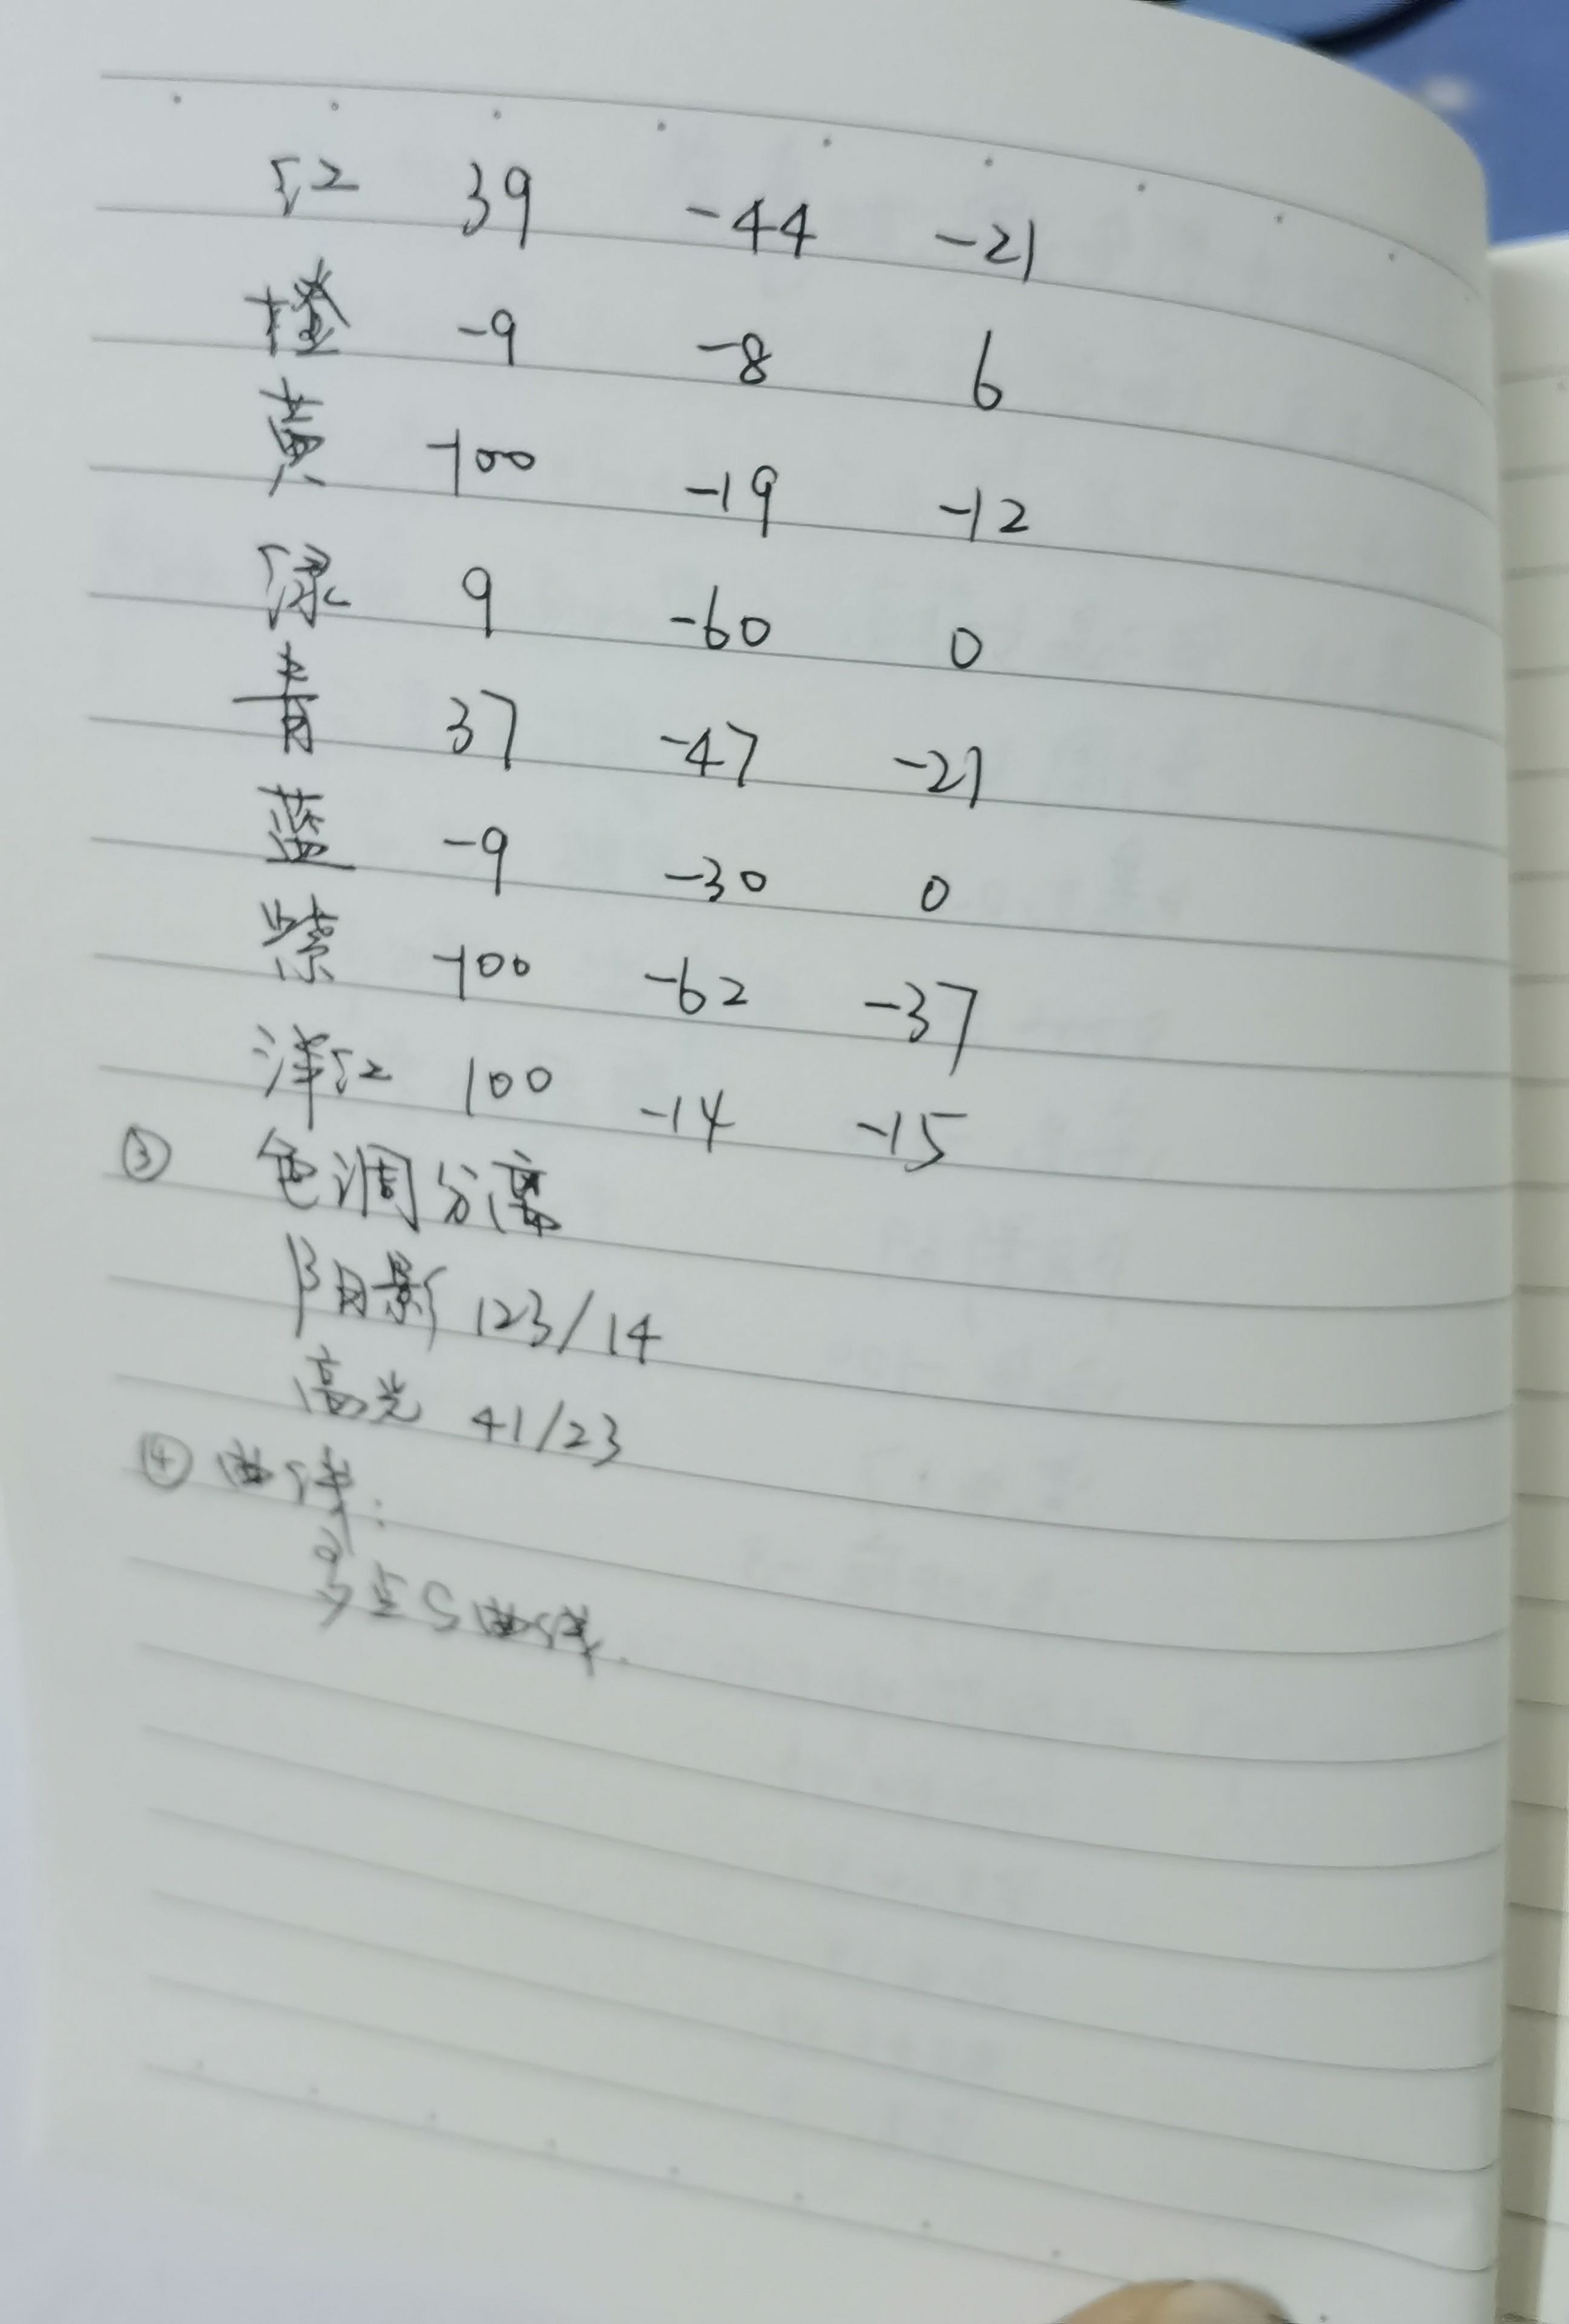 红 39 -44 -21
橙 -9 -8 6
黄 -100 -19 -12
绿 9 -60 0
青 37 -47 -21
蓝 -9 -30 0
紫 -100 -62 -37
洋红 100 -14 -15
③ 色调分离
阴影 123/14
高光 41/23
④ 曲线:
多点S曲线.